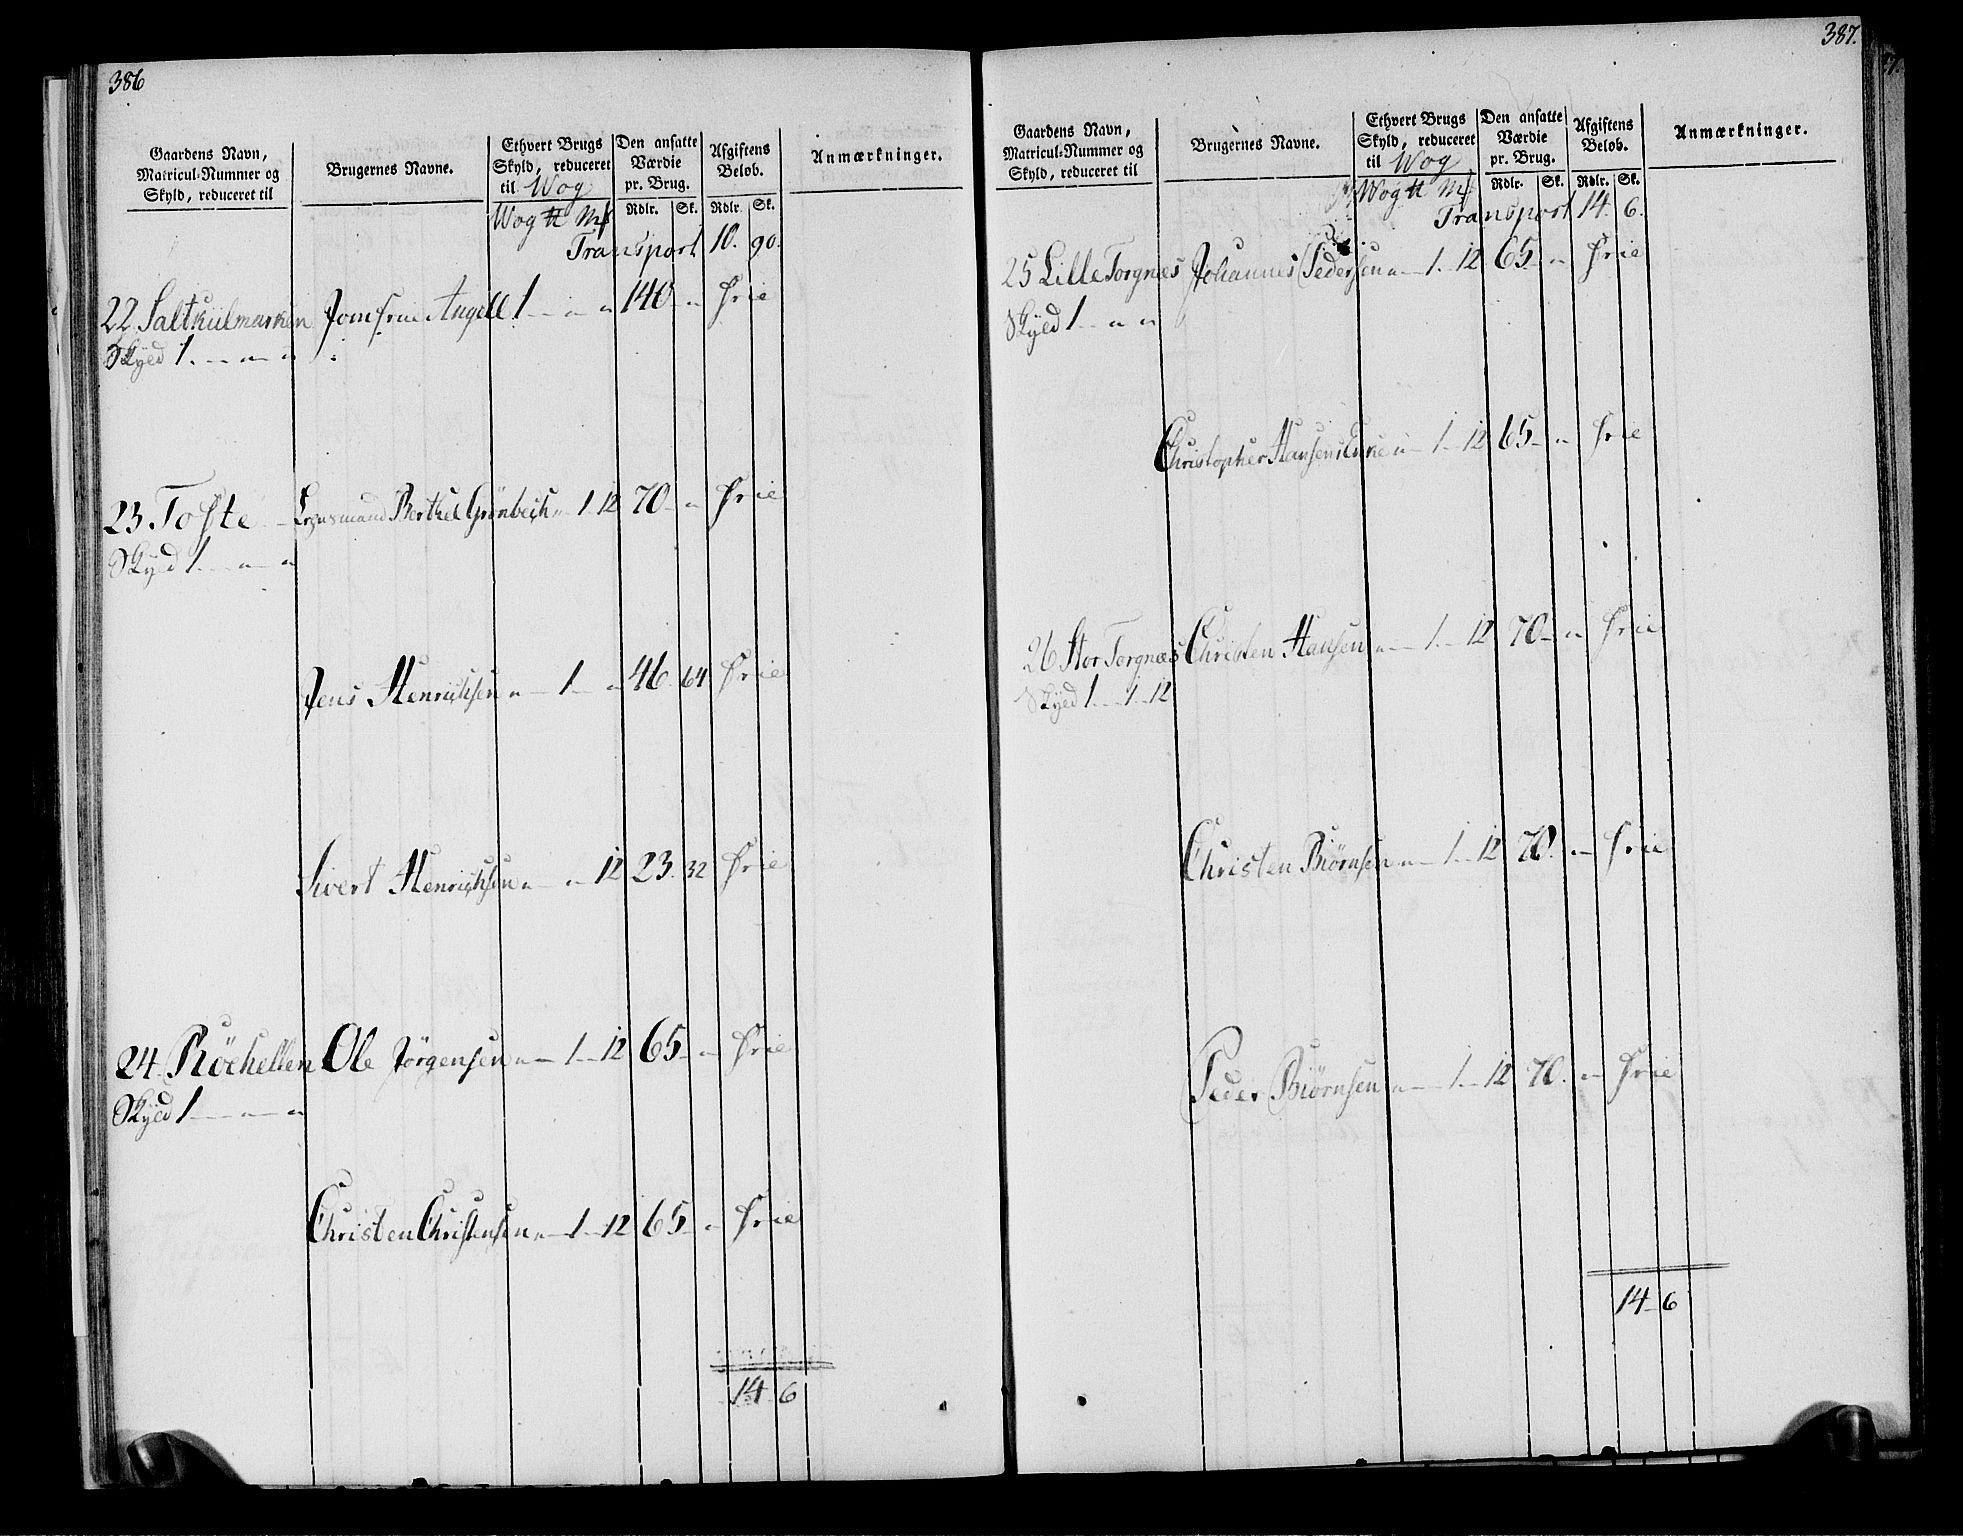 386
Gaardens Navn, Matricul-Nummer og Skyld, reduceret til | Brugernes Navne. | Ethvert Brugs Skyld, reduceret til Wog | Den ansatte Værdie pr. Brug. | Afgiftens Beløb. | Anmærkninger.
Wog ℔ M | Rdlr. | Sk. | Rdlr. | Sk.
Transport 10. 90.
22 Saltkiilmarken Jomfrue Angell 1 — „ „ 140 „ Frie
Skyld 1. — „ — „
23 Tofte — Berthel Grönbech „ 1 12 70 — „ Frie
Skyld 1. — „ — „
Jens Henrichsen „ — 1 — „ 46. 64 Frie
Sivert Henrichsen „ — „ — 12 23. 32 Frie
24 Röehelten Ole Jörgensen „ — 1 — 12 65 — „ Frie
Skyld 1 — „ — „
Christen Christensen „ — 1 — 12 65 — „ Frie
14 6
387.
Gaardens Navn, Matricul-Nummer og Skyld, reduceret til | Brugernes Navne. | Ethvert Brugs Skyld, reduceret til Wog | Den ansatte Værdie pr. Brug. | Afgiftens Beløb. | Anmærkninger.
Wog ℔ M | Rdlr. | Sk. | Rdlr. | Sk.
Transport 14. 6.
25 Lille Torgnæs Johannes Pedersen „ — 1. 12 65 — „ Frie
Skyld 1 — „ — „
Christopher Hansens Enke „ — 1 — 12 65 — „ Frie
26 Stor Torgnæs Christen Hansen „ — 1. — 12 70 — „ Frie
Skyld 1. — 1. 12
Christen Biörnsen „ — 1 — 12 70. „ — Frie
Peder Biörnsen „ — 1 — 12 70. „ — Frie
14 6